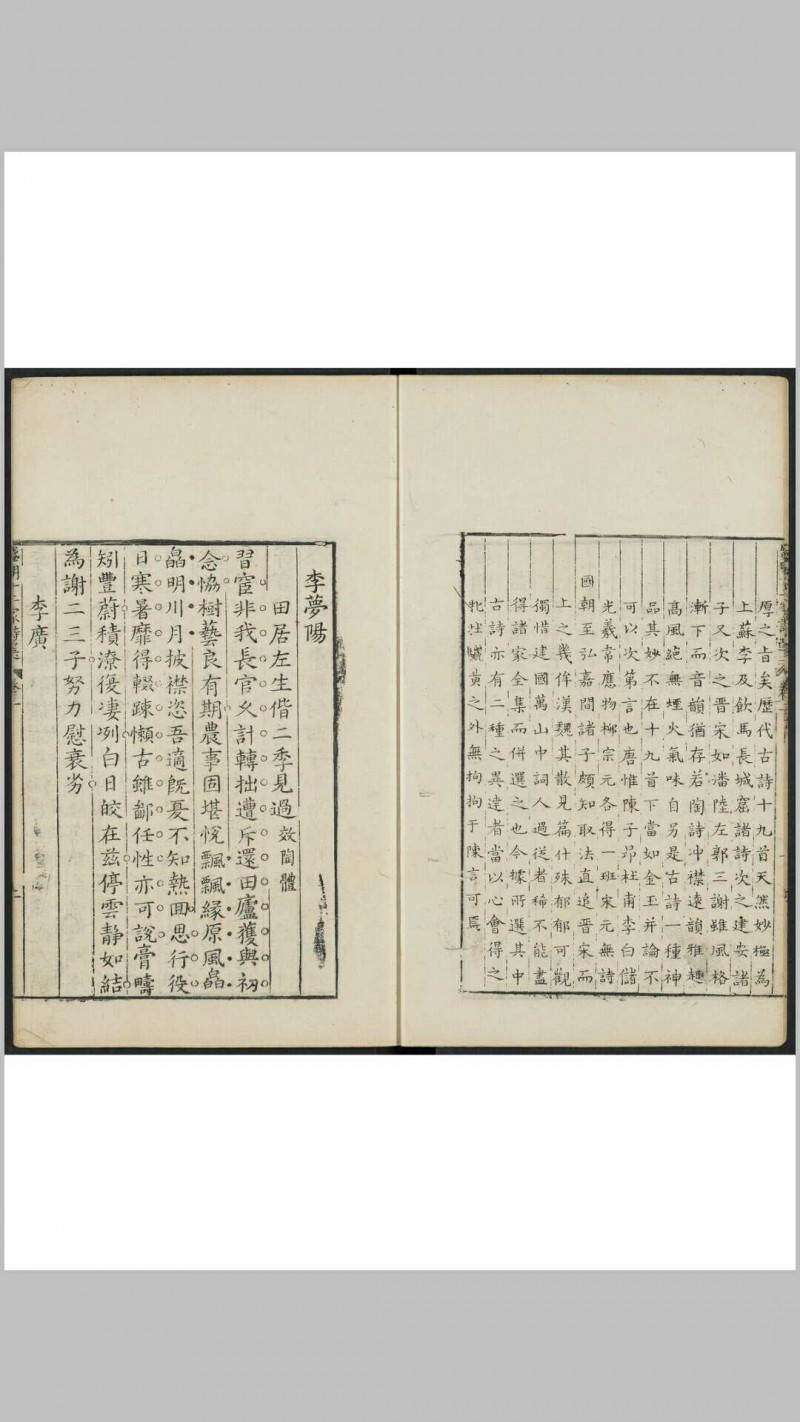 厚之旨矣歷代古詩十九首天然妙極為
上蘇李及飲馬長城窟諸詩次之建安諸
子又次之晋宋如潘陸左郭三謝雖風格
漸下而音韻猶存若陶詩冲襟遠韻雅趣
髙風絶無煙火氣味自另是古詩一種神
品其妙不在十九首下當如金玉并論不
可以次第言也唐惟陳子昂杜甫李白儲
光羲常應物柳宗元各得一班宋元無詩
國朝至弘嘉間諸子頗知取法直追晋宋而
上之幾侔漢魏其散見篇什殊郁郁可觀
獨惜建國萬山中詞人過從者稀不能盡
得諸家全集而併選之也今據所選其中
古詩亦有二種之異達者當以心會得之
牝牡驪黄之外無拘拘于陳言可焉
李夢陽
田居左生偕二季見過效陶體
習宦非我長官乆計轉拙遭斥還田廬獲與初
念恊樹藝良有期農事固堪悅飄飄緣原風皛
皛明川月披襟恣吾適旣憂不知熱囬思行役
日寒暑靡得輟踈懶古雖鄙任性亦可說膏疇
矧豐蔚積潦復凄冽白日皎在兹停雲静如結
為謝二三子努力慰衰劳
李廣